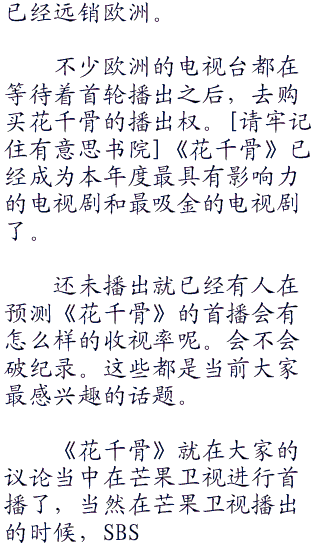 已经远销欧洲。
不少欧洲的电视台都在
等待着首轮播出之后，去购
买花千骨的播出权。[请牢记
住有意思书院]《花千骨》已
经成为本年度最具有影响力
的电视剧和最吸金的电视剧
了。
还未播出就已经有人在
预测《花千骨》的首播会有
怎么样的收视率呢。会不会
破纪录。这些都是当前大家
最感兴趣的话题。
《花千骨》就在大家的
议论当中在芒果卫视进行首
播了，当然在芒果卫视播出
的时候，SBS